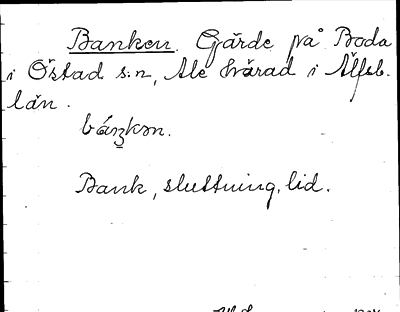 Banken. Gärde på Boda
i Östad s:n, Ale härad i Älfsb.
län.
Bank, sluttning, lid.